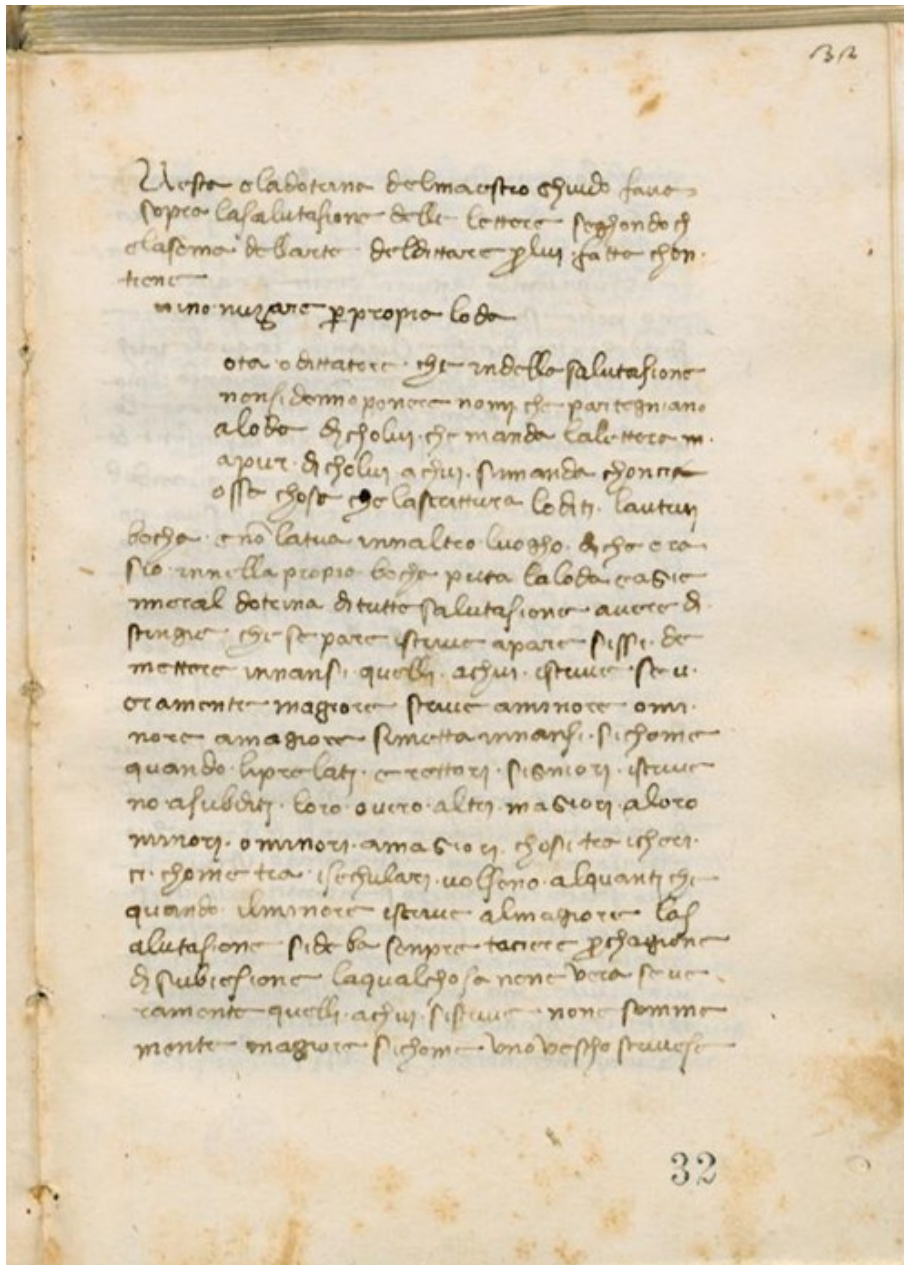 32
Uesta e la dotrina del maestro Ghuido fava
sopra la salutasione delle lettere seghondo ch
e la soma dell arte del dittare p lui fatta chon
tiene
ota o dittatore che in della salutasione
non si denno ponere nomi che partegniano
a loda di cholui che manda la lettera m
a pur di cholui a chui si manda choncia
ossa chosa che la scrittura lo diti l autrui
bocha e nō la tua inn altro luogho di che ora
sio inn ella propia bocha puta la loda e a gie
nneral dotrina di tutte salutasione avere di
stingie che se pare iscrive a pare si ssi de
mettere innansi quelli a chui iscrive se v
eramente magiore scrive a minore o mi
nore a magiore si metta innansi si chome
quando li prelati e rettori signiori iscrive
no a subditi loro overo altri magiori a loro
minori o minori a magiori chosi tra i cheri
ci chome tra i sechulari volseno alquanti che
quando il minore iscrive al magiore la s
alutasione si deba senpre taciere p chagione
di subiesione la qual chosa none vera se ve
ramente quelli a chui si scrive none somma
mente magiore si chome uno vescho scrivese
32